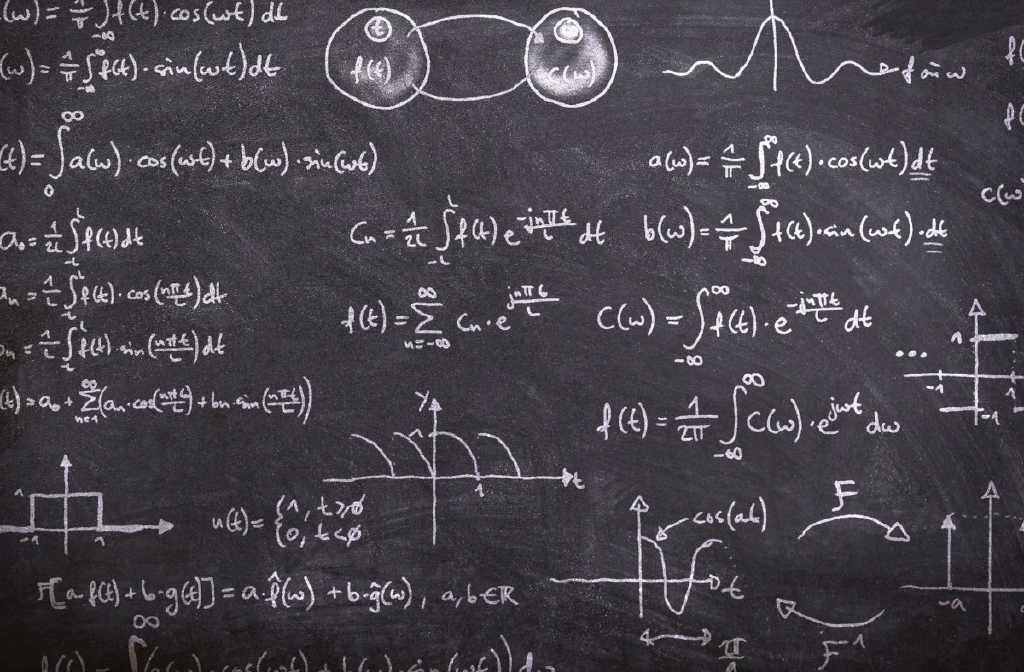 (ω) = 1/π ∫_{-∞} f(t)·cos(ωt) dt
(ω) = 1/π ∫_{-∞}^{∞} f(t)·sin(ωt)dt
t
f(t)
C(ω)
f ω
(t) = ∫_0^∞ a(ω)·cos(ωt) + b(ω)·sin(ωt)
a(ω) = 1/π ∫_{-∞}^{∞} f(t)·cos(ωt) dt
C(ω
a₀ = 1/2L ∫_{-L}^{L} f(t)dt
Cₙ = 1/2L ∫_{-L}^{L} f(t) e^{-jnπt/L} dt
b(ω) = 1/π ∫_{-∞}^{∞} f(t)·sin(ωt)·dt
aₙ = 1/L ∫_{-L}^{L} f(t)·cos(nπt/L)dt
f(t) = ∑_{n=-∞}^{∞} Cₙ·e^{jnπt/L}
C(ω) = ∫_{-∞}^{∞} f(t)·e^{-jnπt/L} dt
bₙ = 1/L ∫_{-L}^{L} f(t)·sin(nπt/L)dt
...
1
-1
1
-1
(t) = a₀ + ∑_{n=1}^{∞} (aₙ·cos(nπt/L) + bₙ·sin(nπt/L))
f(t) = 1/2π ∫_{-∞}^{∞} C(ω)·e^{jωt} dω
y
1
1
t
1
-1
1
u(t) = {1, t≥0
0, t<0
cos(at)
t
F
-a
F[a·f(t) + b·g(t)] = a·f̂(ω) + b·ĝ(ω), a,b∈ℝ
F⁻¹
π
∞
f(t) = ∫(a(ω)·cos(ωt) + b(ω)·sin(ωt)) dω